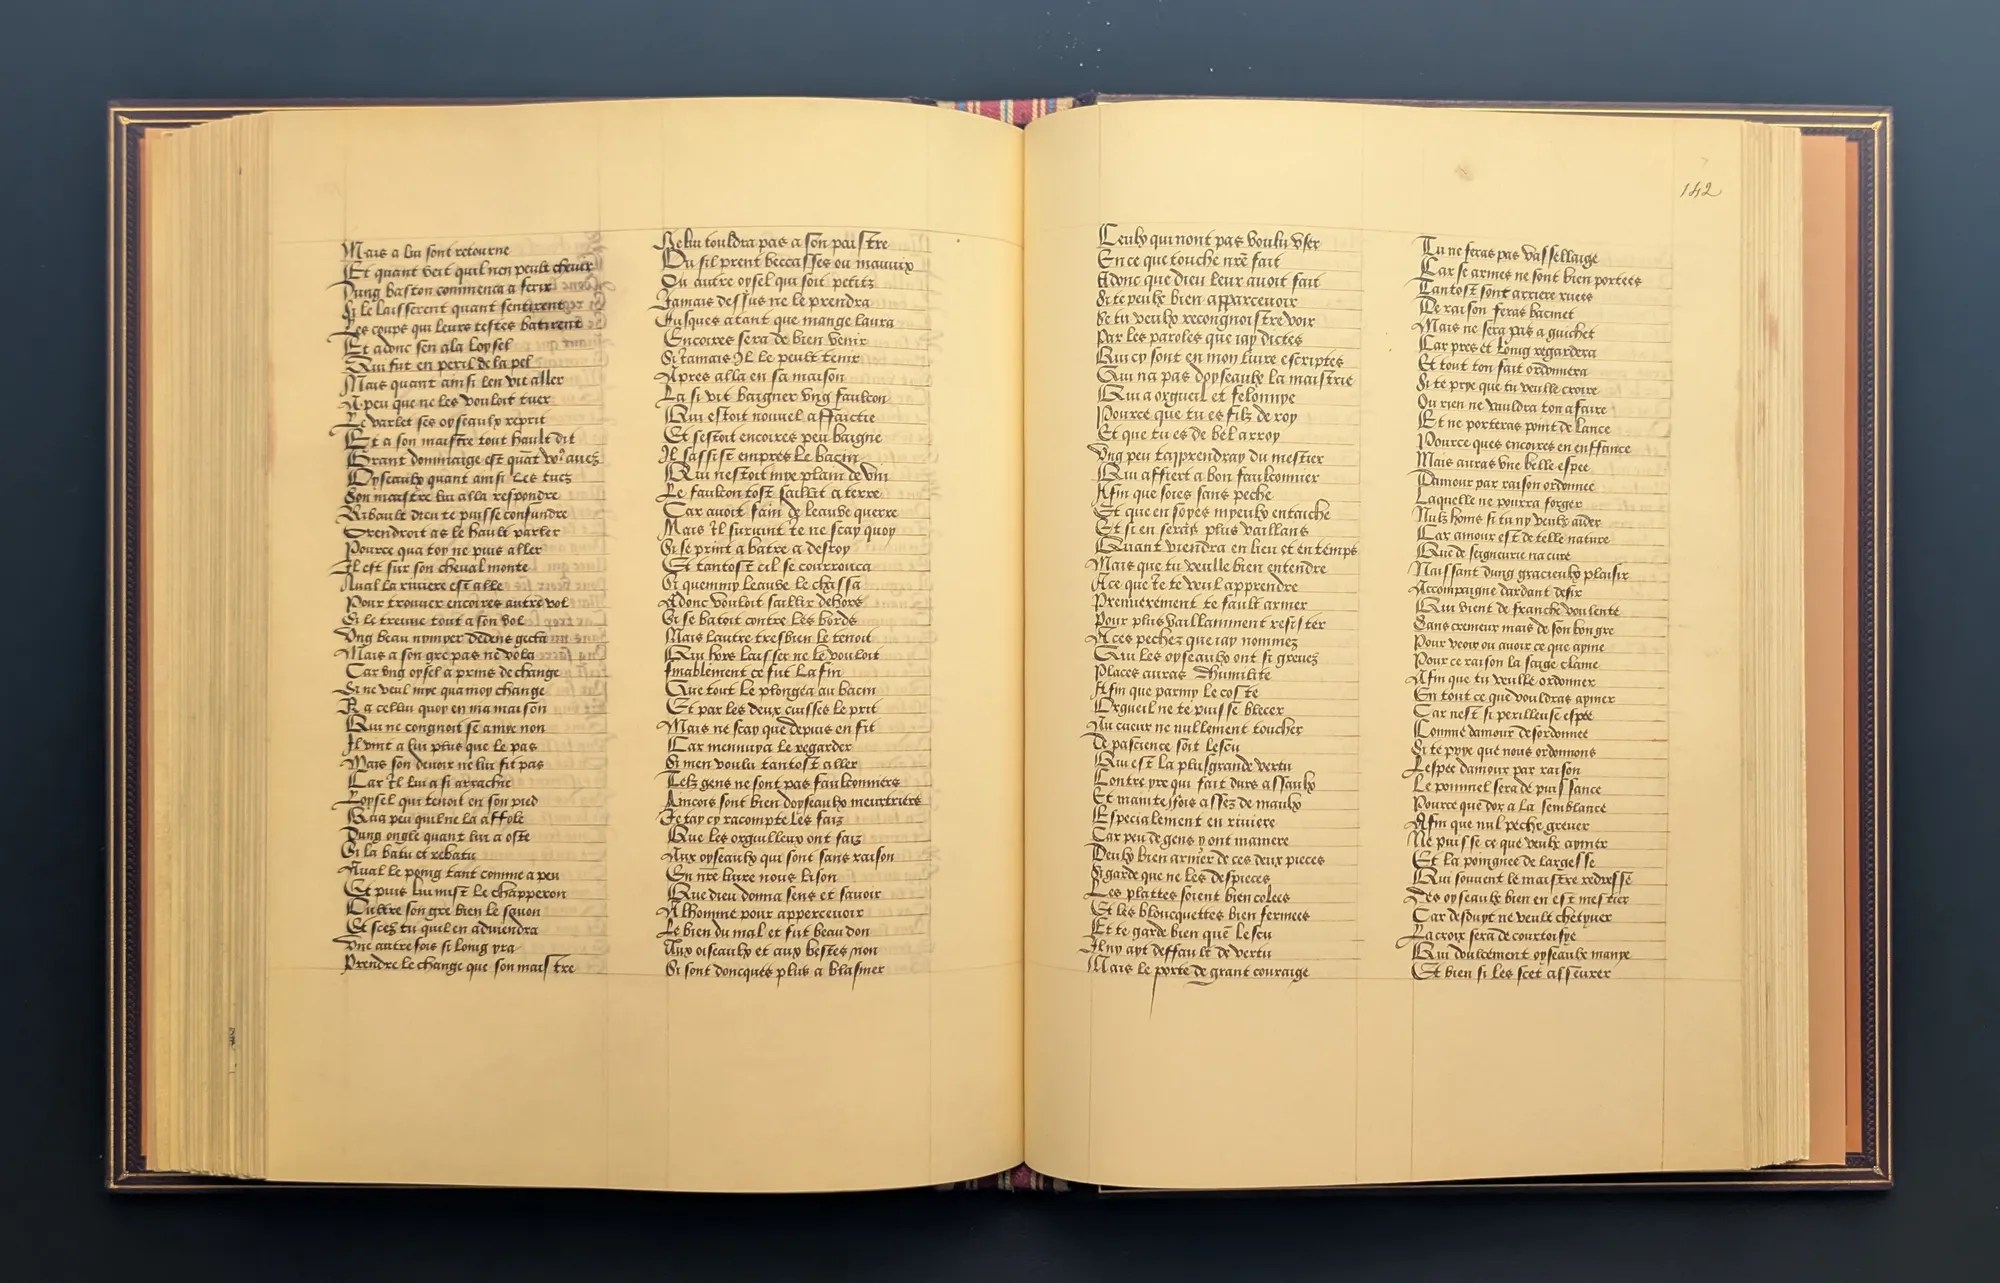 Mais a lui sont retourne
Et quant veit quil nen peult chevir
Dung baston commenca a ferir
Si le laisserent quant sentirent
Les coups qui leurs testes batirent
Et adonc sen ala loysel
Qui fut en peril de la pel
Mais quant ainsi len vit aller
A peu que ne les vouloit tuer
Le varlet ses oyseaulx reprit
Et a son maistre tout hault dit
Grant dommaige est quāt voꝰ avez
Oyseaulx quant ainsi les tuez
Son maistre lui alla respondre
Ribault dieu te puisse confundre
Orendroit as le hault parler
Pource qua toy ne puis aller
Il est sur son cheval monte
Aval la riviere est alle
Pour trouver encoires autre vol
Si le treuve tout a son vol
Ung beau nymper dedens gecta
Mais a son gre pas ne vola
Car ung oysel a prins de change
Si ne veul mye qua moy change
R a cellui quoy en ma maison
Qui ne congnoit se a mye non
Il vint a lui plus que le pas
Mais son devoir ne lui fit pas
Car il lui a si arrachie
Loysel qui tenoit en son pied
Qua peu quil ne la affole
Dung ongle quant lui a oste
Si la batu et rebatu
Aval le poing tant comme a peu
Et puis lui mist le chapperon
Oultre son gre bien le scavon
Et scez tu quel en adviendra
Une autre fois si loing yra
Prendre le change que son maistre
Ne lui touldra pas a son paistre
Ou sil prent beccasses ou mauvix
Ou autre oysel qui soit petitz
Jamais dessus ne le prendra
Jusques atant que mange laura
Encoires sera de bien venir
Si jamais Il le peult tenir
Apres alla en sa maison
La si vit baigner ung faulcon
Qui estoit nouvel affaictie
Et sestoit encoires peu baigne
Il sassist empres le bacin
Qui nestoit mye plain de vin
Le faulcon tost saillit a terre
Car avoit fain de leaube querre
Mais Il survint je ne scay quoy
Si se print a batre a desroy
Et tantost cil se courrouca
Si quemmy leaube le chassa
Adonc vouloit saillir dehors
Si se batoit contre les bords
Mais lautre tresbien le tenoit
Qui hors laisser ne le vouloit
finablement ce fut la fin
Que tout le plongea au bacin
Et par les deux cuisses le prit
Mais ne scay que depuis en fit
Car mennuya le regarder
Si men voulu tantost aller
Telz gens ne sont pas faulconniers
Ancois sont bien doyseaulx meurtriers
Je tay cy racompte les faiz
Que les orguilleux ont faiz
Aux oyseaulx qui sont sans raison
En nr̄e livre nous lison
Que dieu donna sens et savoir
A lhomme pour appercevoir
Le bien du mal et fut beau don
Aux oiseaulx et aux bestes non
Si sont doncques plus a blasmer
Ceulx qui nont pas voulu user
En ce que touche nr̄e fait
Adonc que dieu leur avoit fait
Si te peulx bien apparcevoir
Se tu veulx recongnoistre voir
Par les paroles que iay dictes
Qui cy sont en mon livre escriptes
Qui na pas doyseaulx la maistrie
Qui a orgueil et felonnye
Pource que tu es filz de roy
Et que tu es de bel arroy
Ung peu tapprendray du mestier
Qui affiert a bon faulconnier
Afin que soies sans peche
Et que en soyes myeulx entaiche
Et si en seras plus vaillans
Quant viendra en lieu et en temps
Mais que tu veulle bien entendre
A ce que je te veul apprendre
Premierement te fault armer
Pour plus vaillamment resister
A ces pechez que iay nommez
Qui les oyseaulx ont si grevez
Places auras dhumilite
Afin que parmy le coste
Orgueil ne te puisse blecer
Au cueur ne nullement toucher
De pascience soit lescu
Qui est la plus grande vertu
Contre yre qui fait durs assaulx
Et maintesfois assez de maulx
Especialement en riviere
Car peu de gens y ont maniere
Veulx bien armer de ces deux pieces
Si garde que ne les despieces
Les plattes soient bien colees
Et les blouquettes bien fermees
Et te garde bien que lescu
Il ny ayt deffault de vertu
Mais le porte de grant couraige
142
Tu ne feras pas vassellaige
Car se armes ne sont bien portees
Tantost sont arriere ruees
De raison feras bacinet
Mais ne sera pas a guichet
Car pres et loing regardera
Et tout ton fait ordonnera
Si te prye que tu veulle croire
Ou rien ne vauldra ton afaire
Et ne porteras point de lance
Pource ques encoires en enffance
Mais auras une belle espee
Damour par raison ordonnee
Laquelle ne pourra forger
Nulz homs si tu ny veulx aider
Car amour est de telle nature
Que de seigneurie na cure
Naissant dung gracieulx plaisir
Accompaigne dardant desir
Qui vient de franche voulente
Sans cremeur mais de son bon gre
Pour veoir ou avoir ce que ayme
Pour ce raison la saige clame
Afin que tu veulle ordonner
En tout ce que vouldras aymer
Car nest si perilleuse espee
Comme damour desordonnee
Si te prye que nous ordonnons
Lespee damour par raison
Le pommel sera de puissance
Pource que dor a la semblance
Afin que nul peche grever
Ne puisse ce que veulx aymer
Et la poingnee de largesse
Qui souvent le maistre redresse
Des oyseaulx bien en est mestier
Car desduyt ne veult chetyver
La croix sera de courtoisye
Qui doulcement oyseaulx manye
Et bien si les scet asseurer